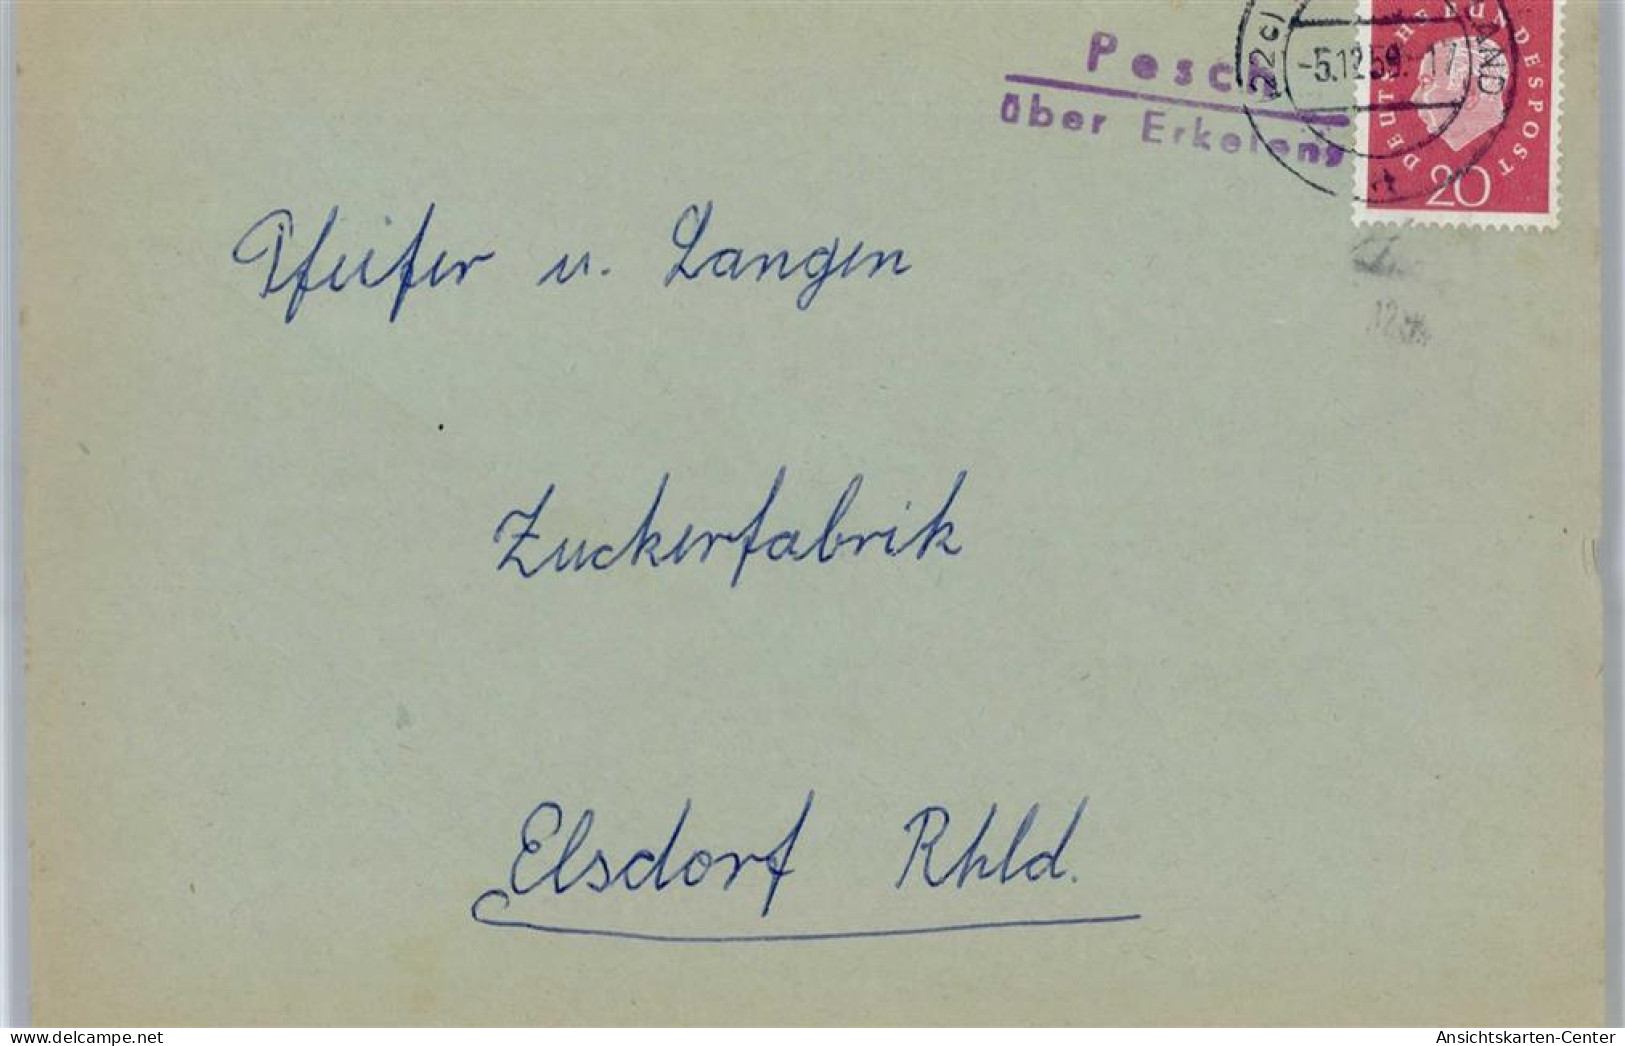 Pesch
über Erkelenz
(22c)
-5.12.59.-17
AND
DEUTSCHE BUNDESPOST
20
Pfeifer u. Langen
Zuckerfabrik
Elsdorf Rhld.
Ansichtskarten-Center